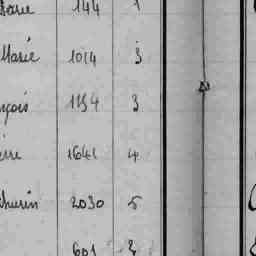 Marie 144 1
Marie 1014 3
nçois 1154 3
erre 1641 4
thurin 2030 5
601 2